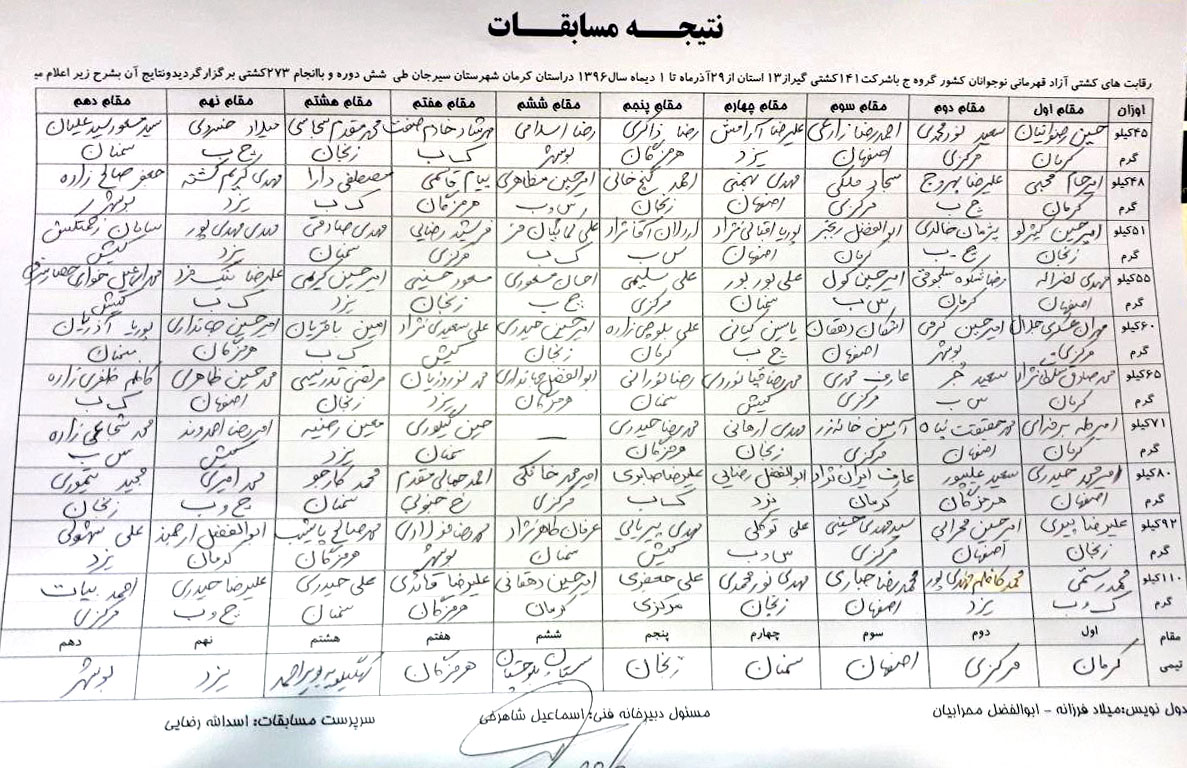 نتیجـــه مسابقـــات
رقابت های کشتی آزاد قهرمانی نوجوانان کشور گروه ج باشرکت ۱۴۱کشتی گیراز۱۳ استان از۲۹آذرماه تا ۱ دیماه سال۱۳۹۶ دراستان کرمان شهرستان سیرجان طی شش دوره و باانجام ۲۷۳کشتی برگزارگردیدونتایج آن بشرح زیر اعلام می
اوزان مقام اول مقام دوم مقام سوم مقام چهارم مقام پنجم مقام ششم مقام هفتم مقام هشتم مقام نهم مقام دهم
۴۵کیلو حسین سعید نورمحمدی احمدرضا زارعی علیرضا آرامش رضا ذاکری رضا اسلامی مهرشاد خادم محمد مقدم میلاد سید مسعود سید علیان
گرم کرمان مرکزی اصفهان یزد هرمزگان بوشهر ک ب زنجان چ ب سمنان
۴۸کیلو امیرحسام محبی علیرضا بهروج سجاد ملکی مهدی بهمنی احمد گنج خانی امیرحسین مظاهری پیام قاسمی مصطفی دارا مهدی کریم کشته جعفر صالح زاده
گرم کرمان چ ب مرکزی اصفهان زنجان س و ب هرمزگان ک ب یزد بوشهر
۵۱کیلو امیرحسین پژمان خالدی ابوالفضل رنجبر پوریا اردلان علی فرشید رضایی مهدی صادقی مهدی مهدی پور سامان زحمتکش
گرم زنجان چ ب کرمان اصفهان س ب ک ب مرکزی سمنان یزد کیش
۵۵کیلو مهدی نصراله رضا شکوه سلجوقی امیرحسین کول علی پور علی سلیمی احسان منصوری مسعود حسینی امیرحسین کریمی علیرضا نیک فرد
گرم اصفهان کرمان س ب سمنان مرکزی چ ب زنجان یزد ک ب کیش
۶۰کیلو مهران عسگری جلال امیرحسین کرمی اشکان دهقان یاسین کیانی علی بلوچی زاده امیرحسین حیدری علی سعیدی نژاد امین باقریان امیرحسین جهانداری پوریا آذریان
گرم مرکزی بوشهر اصفهان چ ب کرمان زنجان کیش ک ب هرمزگان سمنان
۶۵کیلو محمدصادق سلطانی نژاد سعید عارف محمدی محمدرضا رضا نورانی ابوالفضل جهانداری محمد نوروزیان مرتضی محمدحسین طاهری کاظم ظفری زاده
گرم کرمان س ب مرکزی کیش سمنان هرمزگان یزد زنجان اصفهان ک ب
۷۱کیلو امیرطه محمد حقیقت پناه آرمین مهدی ارمانی محمدرضا حیدری — حسین معین رضیه امیررضا احمدوند محمد شجاعی زاده
گرم کرمان اصفهان مرکزی زنجان هرمزگان سمنان یزد کیش س ب
۸۰کیلو امیرمحمد حیدری سعید علیپور عارف ایران نژاد ابوالفضل رضایی علیرضا صابری امیرمحمد خانگی احمد جمالی مقدم محمد کارجو محمد امیری مجید تیموری
گرم اصفهان هرمزگان کرمان یزد ک ب مرکزی خ جنوبی سمنان چ و ب زنجان
۹۲کیلو علیرضا پیری امیرحسین محرابی سیدمهدی حسینی علی توکلی مهدی پیریایی عرفان طاهرنژاد محمدرضا محمدصالح ابوالفضل ارجمند علی
گرم زنجان اصفهان مرکزی س و ب کیش سمنان بوشهر هرمزگان کرمان یزد
۱۱۰کیلو محمد رستمی محمدکاظم مهدی پور محمدرضا جباری مهدی نورمحمدی علی جعفری امیرحسین دهقانی علیرضا قائدی علی حیدری علیرضا حیدری احمد بیات
گرم ک و ب یزد اصفهان زنجان مرکزی کرمان هرمزگان سمنان چ و ب مرکزی
مقام اول دوم سوم چهارم پنجم ششم هفتم هشتم نهم دهم
تیمی کرمان مرکزی اصفهان سمنان زنجان سیستان بلوچستان هرمزگان کهگیلویه بویراحمد یزد بوشهر
دول نویس:میلاد فرزانه - ابوالفضل محرابیان مسئول دبیرخانه فنی: اسماعیل شاهرخی سرپرست مسابقات: اسدالله رضایی